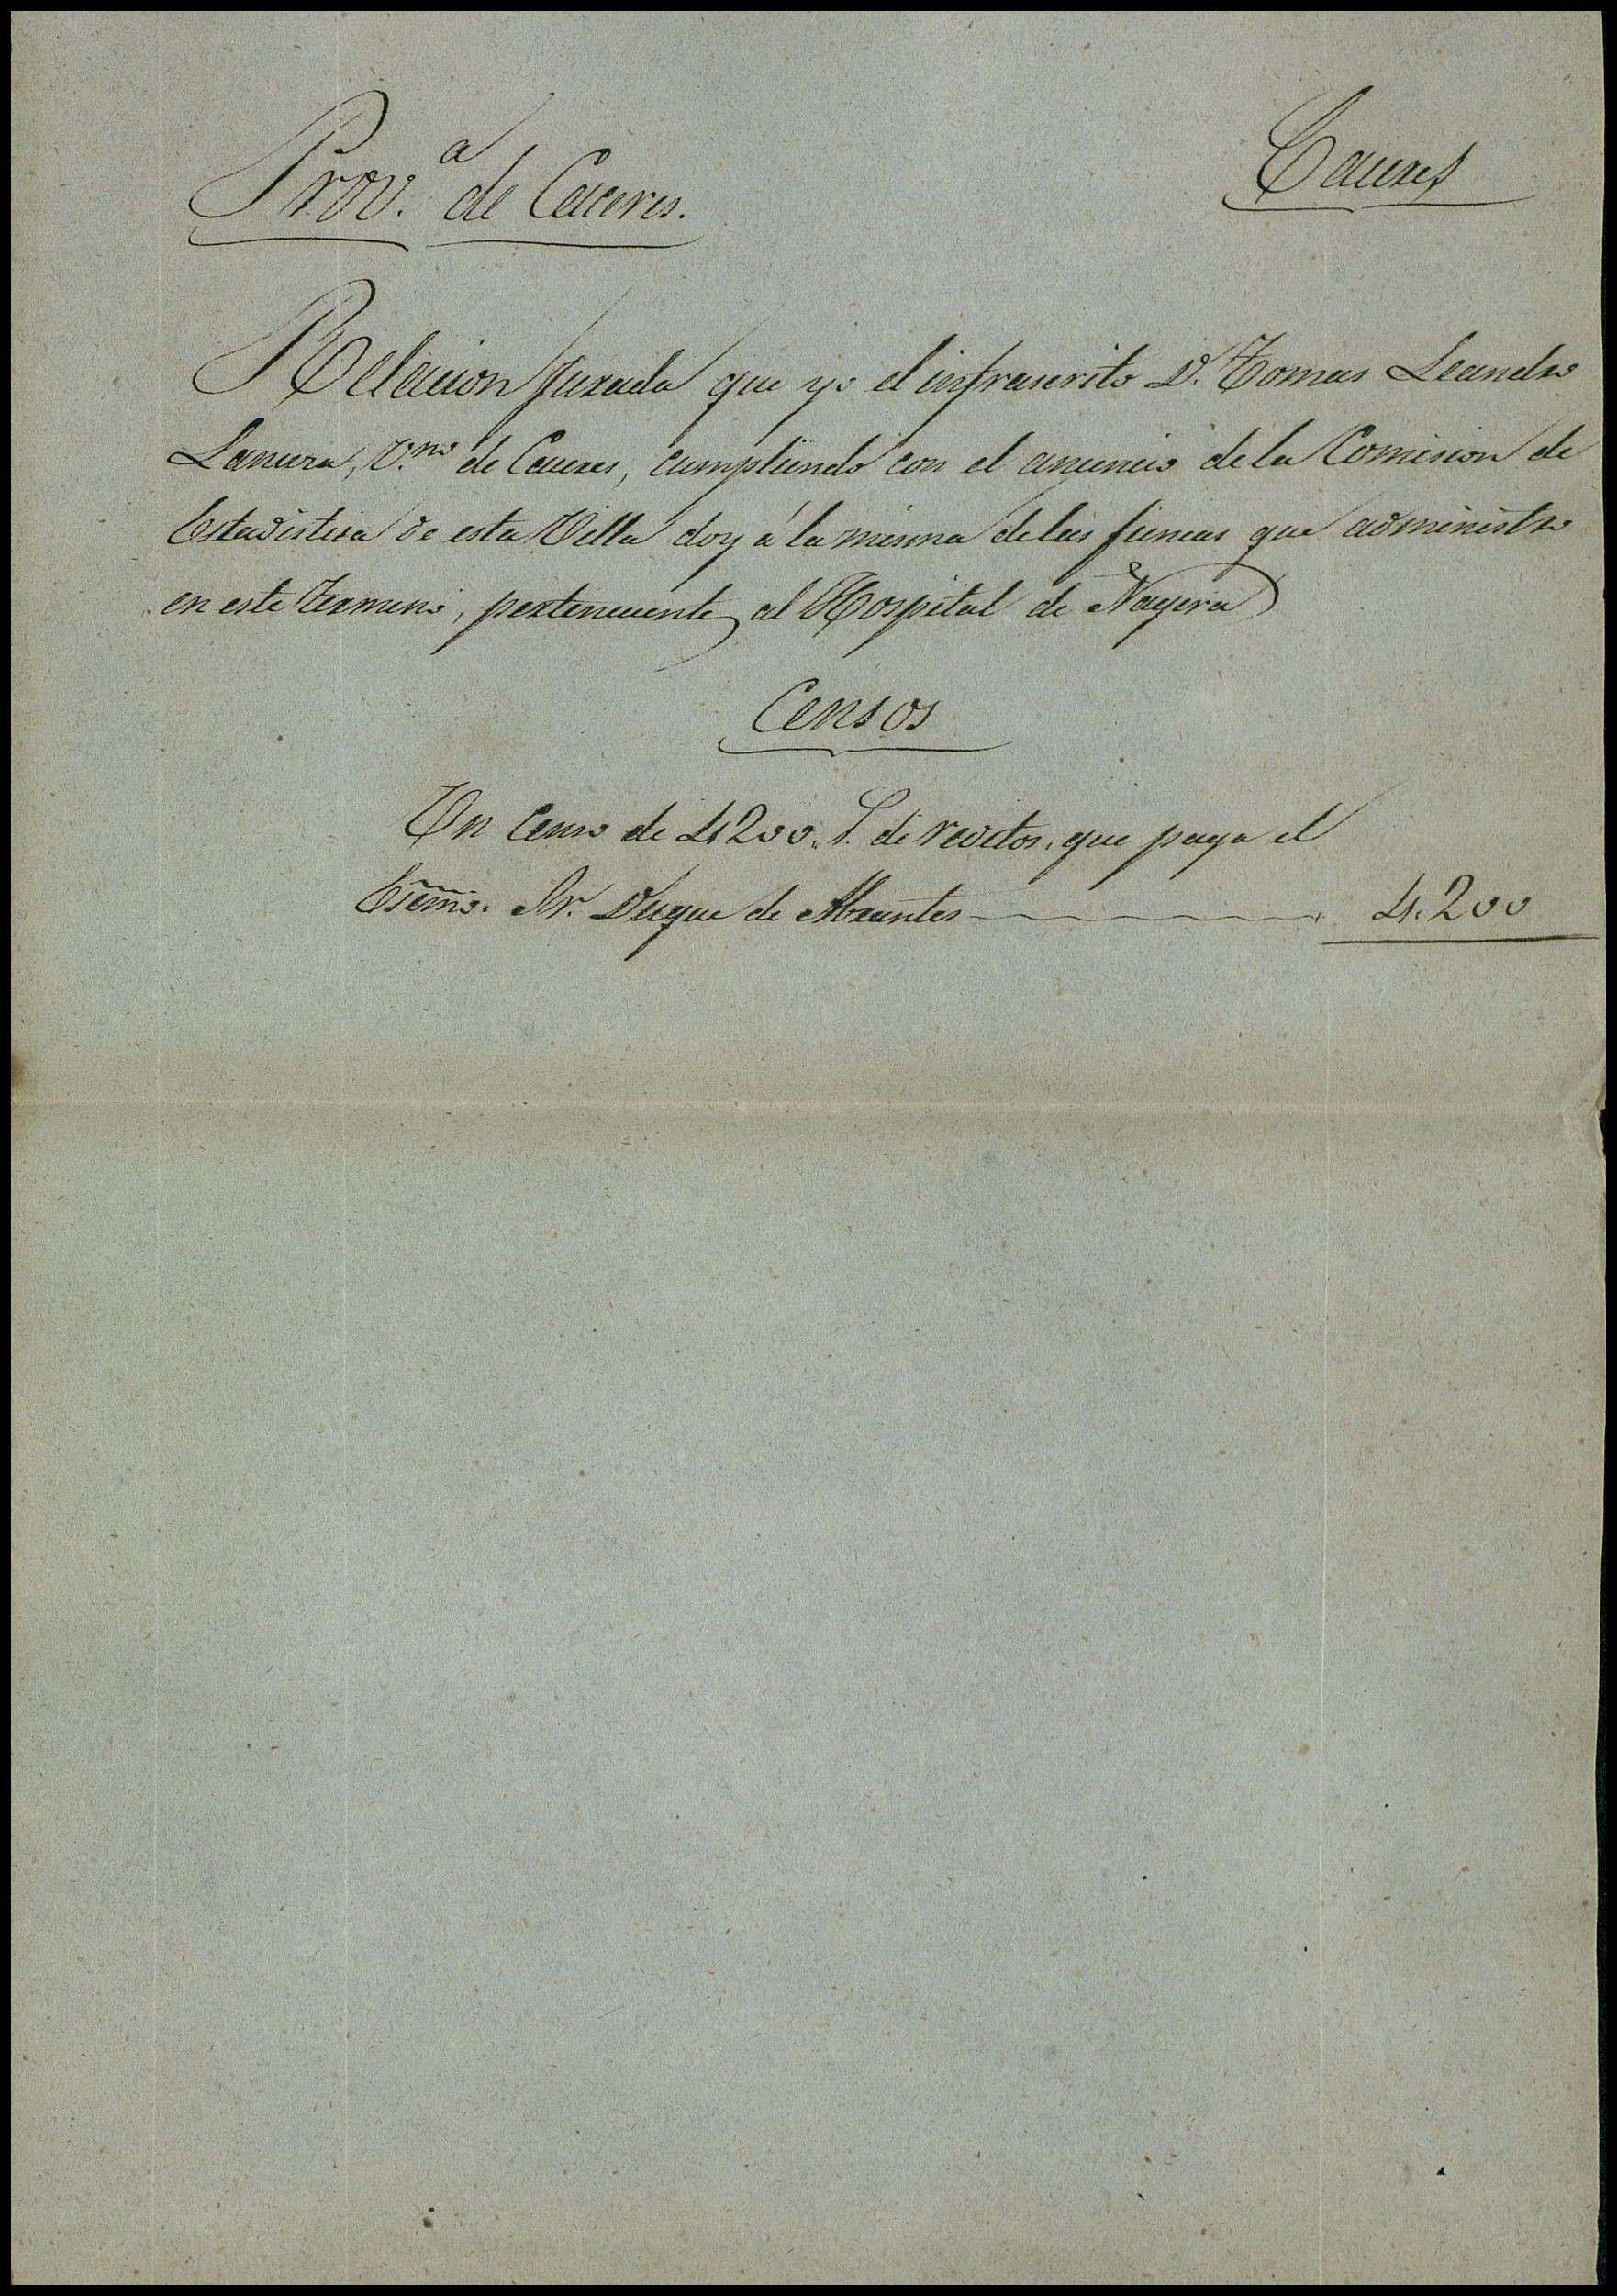 Prov.ª de Caceres.
Caceres
Relacion Jurada que yo el infrascrito D. Tomas Leandro
Lancera, V.no de Caceres, cumpliendo con el anuncio de la Comision de
Estadistica de esta Villa doy á la misma de las fincas que administro
en este termino, perteneciente al Hospital de Nagera
Censos
Un Censo de 4200. de reditos, que paga el
Esemo. Sr. Duque de Abrantes 4.200